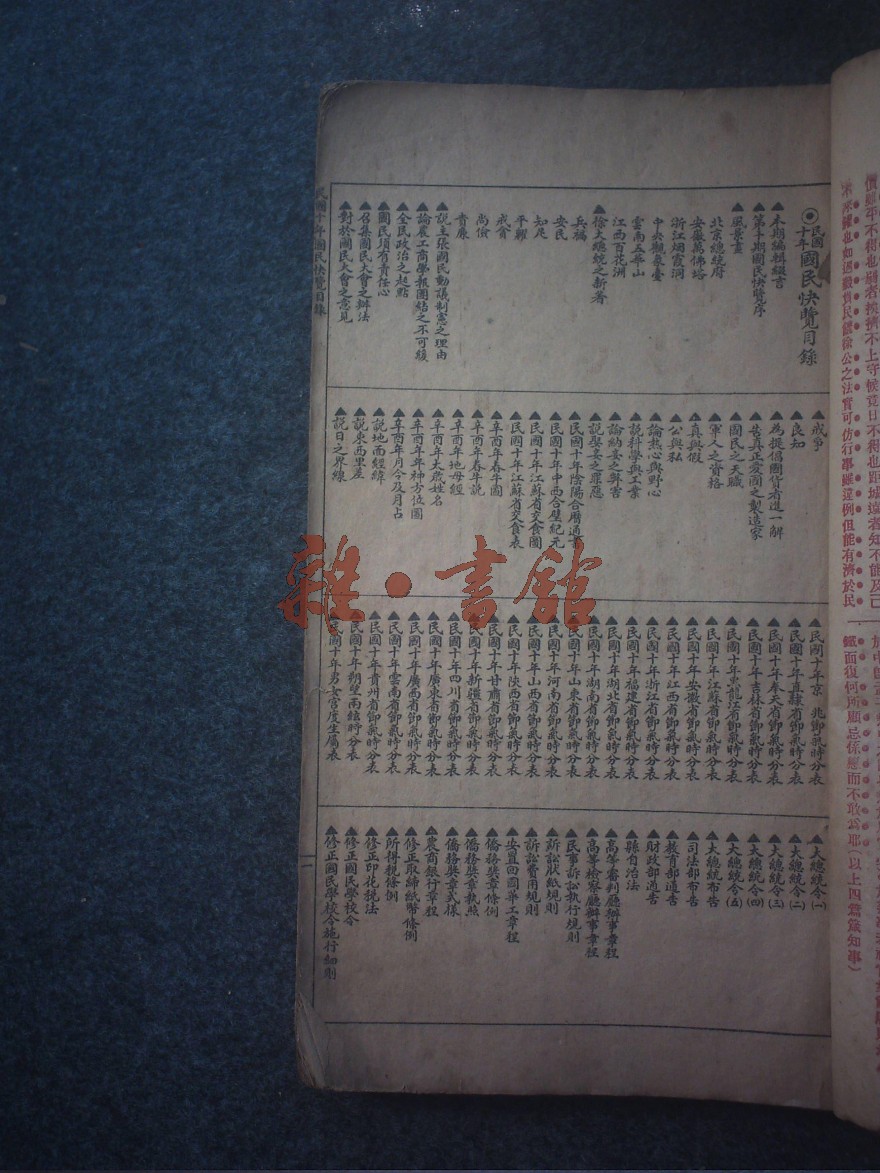 民國十年國民快覽目錄
▲本期編輯綴言
▲第十期國民快覽序
▲風景畫
北京總統府
安徽萬佛塔
浙江烟霞洞
中央觀象臺
雲南五華山
江西百花洲
▲徐大總統之新著
兵禍
安民
知足
平糶
戒貪
尚儉
責廉
▲說主張國民動議制憲之理由
▲論農工商學報團結之不可緩
▲全民政治之起點
▲國民須有責任心
▲召集國民大會之辦法
▲對於國民大會之意見
▲戒爭
▲良知
▲為提倡國貨者進一解
▲告真正愛國之製造家
▲國民之天職
▲軍人之資格
▲真與假
▲公與私
▲論熱心與野心
▲說科學與工業
▲論納妾之弊害
▲說娶妾之罪惡
▲民國十年陰陽合曆通書
▲民國十年中西合璧紀元
▲民國十年江蘇省交食圖
▲民國十年江蘇省交食表
▲辛酉年春牛圖
▲辛酉年春牛說
▲辛酉年地母經
▲辛酉年太歲姓名
▲辛酉年年神方位圖
▲辛酉年月令及月占
▲說地面經緯
▲說東西里差
▲說日之界線
▲民國十年京兆節氣時分表
▲民國十年直隸省節氣時分表
▲民國十年奉天省節氣時分表
▲民國十年吉林省節氣時分表
▲民國十年黑龍江省節氣時分表
▲民國十年江蘇省節氣時分表
▲民國十年安徽省節氣時分表
▲民國十年江西省節氣時分表
▲民國十年浙江省節氣時分表
▲民國十年福建省節氣時分表
▲民國十年湖北省節氣時分表
▲民國十年湖南省節氣時分表
▲民國十年山東省節氣時分表
▲民國十年河南省節氣時分表
▲民國十年山西省節氣時分表
▲民國十年陝西省節氣時分表
▲民國十年甘肅省節氣時分表
▲民國十年新疆省節氣時分表
▲民國十年四川省節氣時分表
▲民國十年廣東省節氣時分表
▲民國十年廣西省節氣時分表
▲民國十年雲南省節氣時分表
▲民國十年貴州省節氣時分表
▲民國十年朔望兩絃時分表
▲民國十年男女宮度生屬表
▲大總統令(一)
▲大總統令(二)
▲大總統令(三)
▲大總統令(四)
▲大總統令(五)
▲大總統布告
▲司法部布告
▲教育部通告
▲財政部通告
▲縣自治法
▲高等審判廳辦事章程
▲高等檢察廳辦事章程
▲民事訴訟執行規則
▲訴訟狀紙規則
▲訴訟費用規則
▲安置回國華工章程
▲僑務獎章條例
▲僑務獎章執照
▲僑務獎章式樣
▲農商銀行章程
▲修正取締紙幣條例
▲所得稅條例
▲修正印花稅法
▲修正國民學校令
▲修正國民學校令施行細則
民國十年國民快覽目錄
一
雜·書館